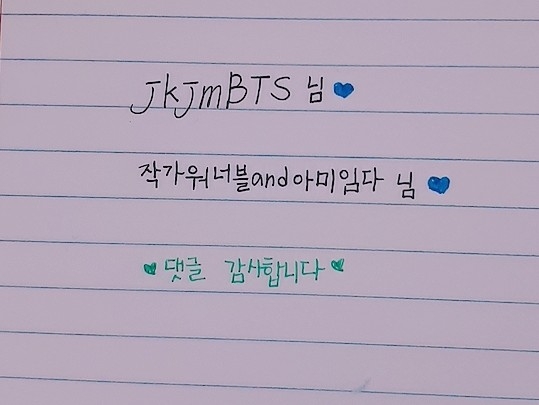 JkJmBTS 님💙
작가워너블and아미임다 님💙
💚댓글 감사합니다💚